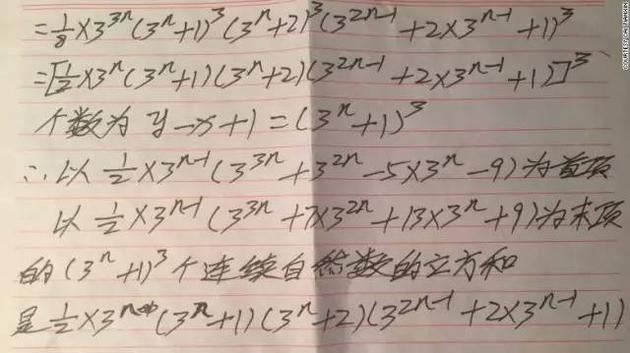 =1/8×3^{3n}(3^n+1)^3(3^n+2)^3(3^{2n-1}+2×3^{n-1}+1)^3
=[1/2×3^n(3^n+1)(3^n+2)(3^{2n-1}+2×3^{n-1}+1)]^3
个数为 y-x+1=(3^n+1)^3
∴以 1/2×3^{n-1}(3^{3n}+3^{2n}-5×3^n-9)为首项
以 1/2×3^{n-1}(3^{3n}+7×3^{2n}+13×3^n+9)为末项
的(3^n+1)^3个连续自然数的立方和
是1/2×3^n(3^n+1)(3^n+2)(3^{2n-1}+2×3^{n-1}+1)
COURTESY CAI TIANXIN